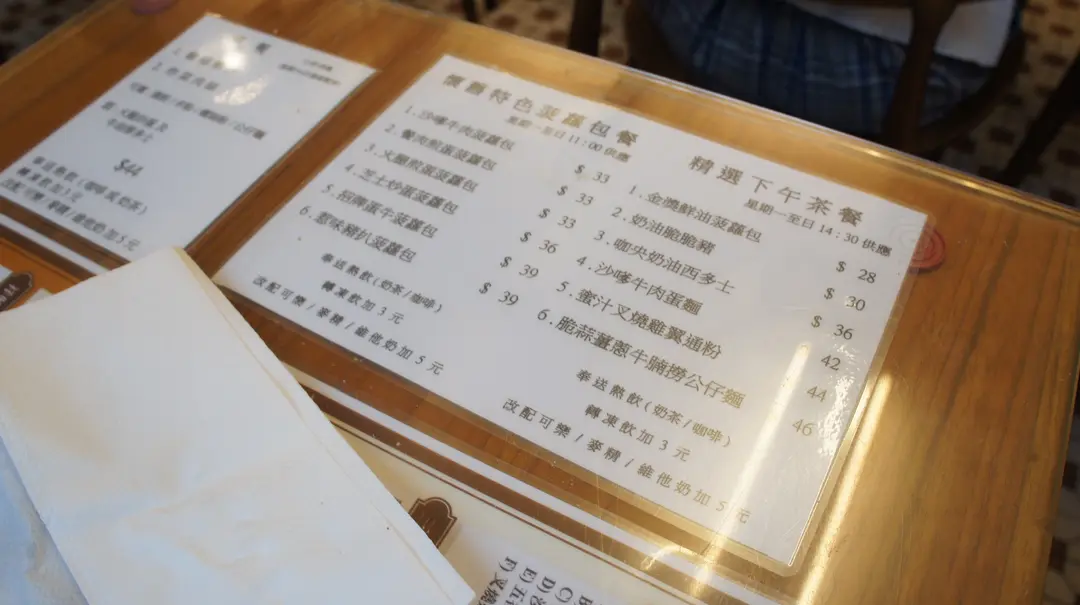 $44
奉送熱飲(咖啡或奶茶)
轉凍飲加3元
改配可樂/麥精/維他奶加5元
懷舊特色菠蘿包餐
星期一至日11:00供應
1.沙嗲牛肉菠蘿包 $ 33
2.餐肉煎蛋菠蘿包 $ 33
3.火腿煎蛋菠蘿包 $ 33
4.芝士炒蛋菠蘿包 $ 36
5.招牌蛋牛菠蘿包 $ 39
6.惹味豬扒菠蘿包 $ 39
奉送熱飲(奶茶/咖啡)
轉凍飲加3元
改配可樂/麥精/維他奶加5元
精選下午茶餐
星期一至日14:30供應
1.金澳鮮油菠蘿包 $ 28
2.奶油脆脆豬 $ 30
3.咖央奶油西多士 $ 36
4.沙嗲牛肉蛋麵 42
5.蜜汁叉燒雞翼通粉 44
6.脆蒜薑蔥牛腩撈公仔麵 46
奉送熱飲(奶茶/咖啡)
轉凍飲加3元
改配可樂/麥精/維他奶加5元
B
C)
D)
E)五
F)叉燒